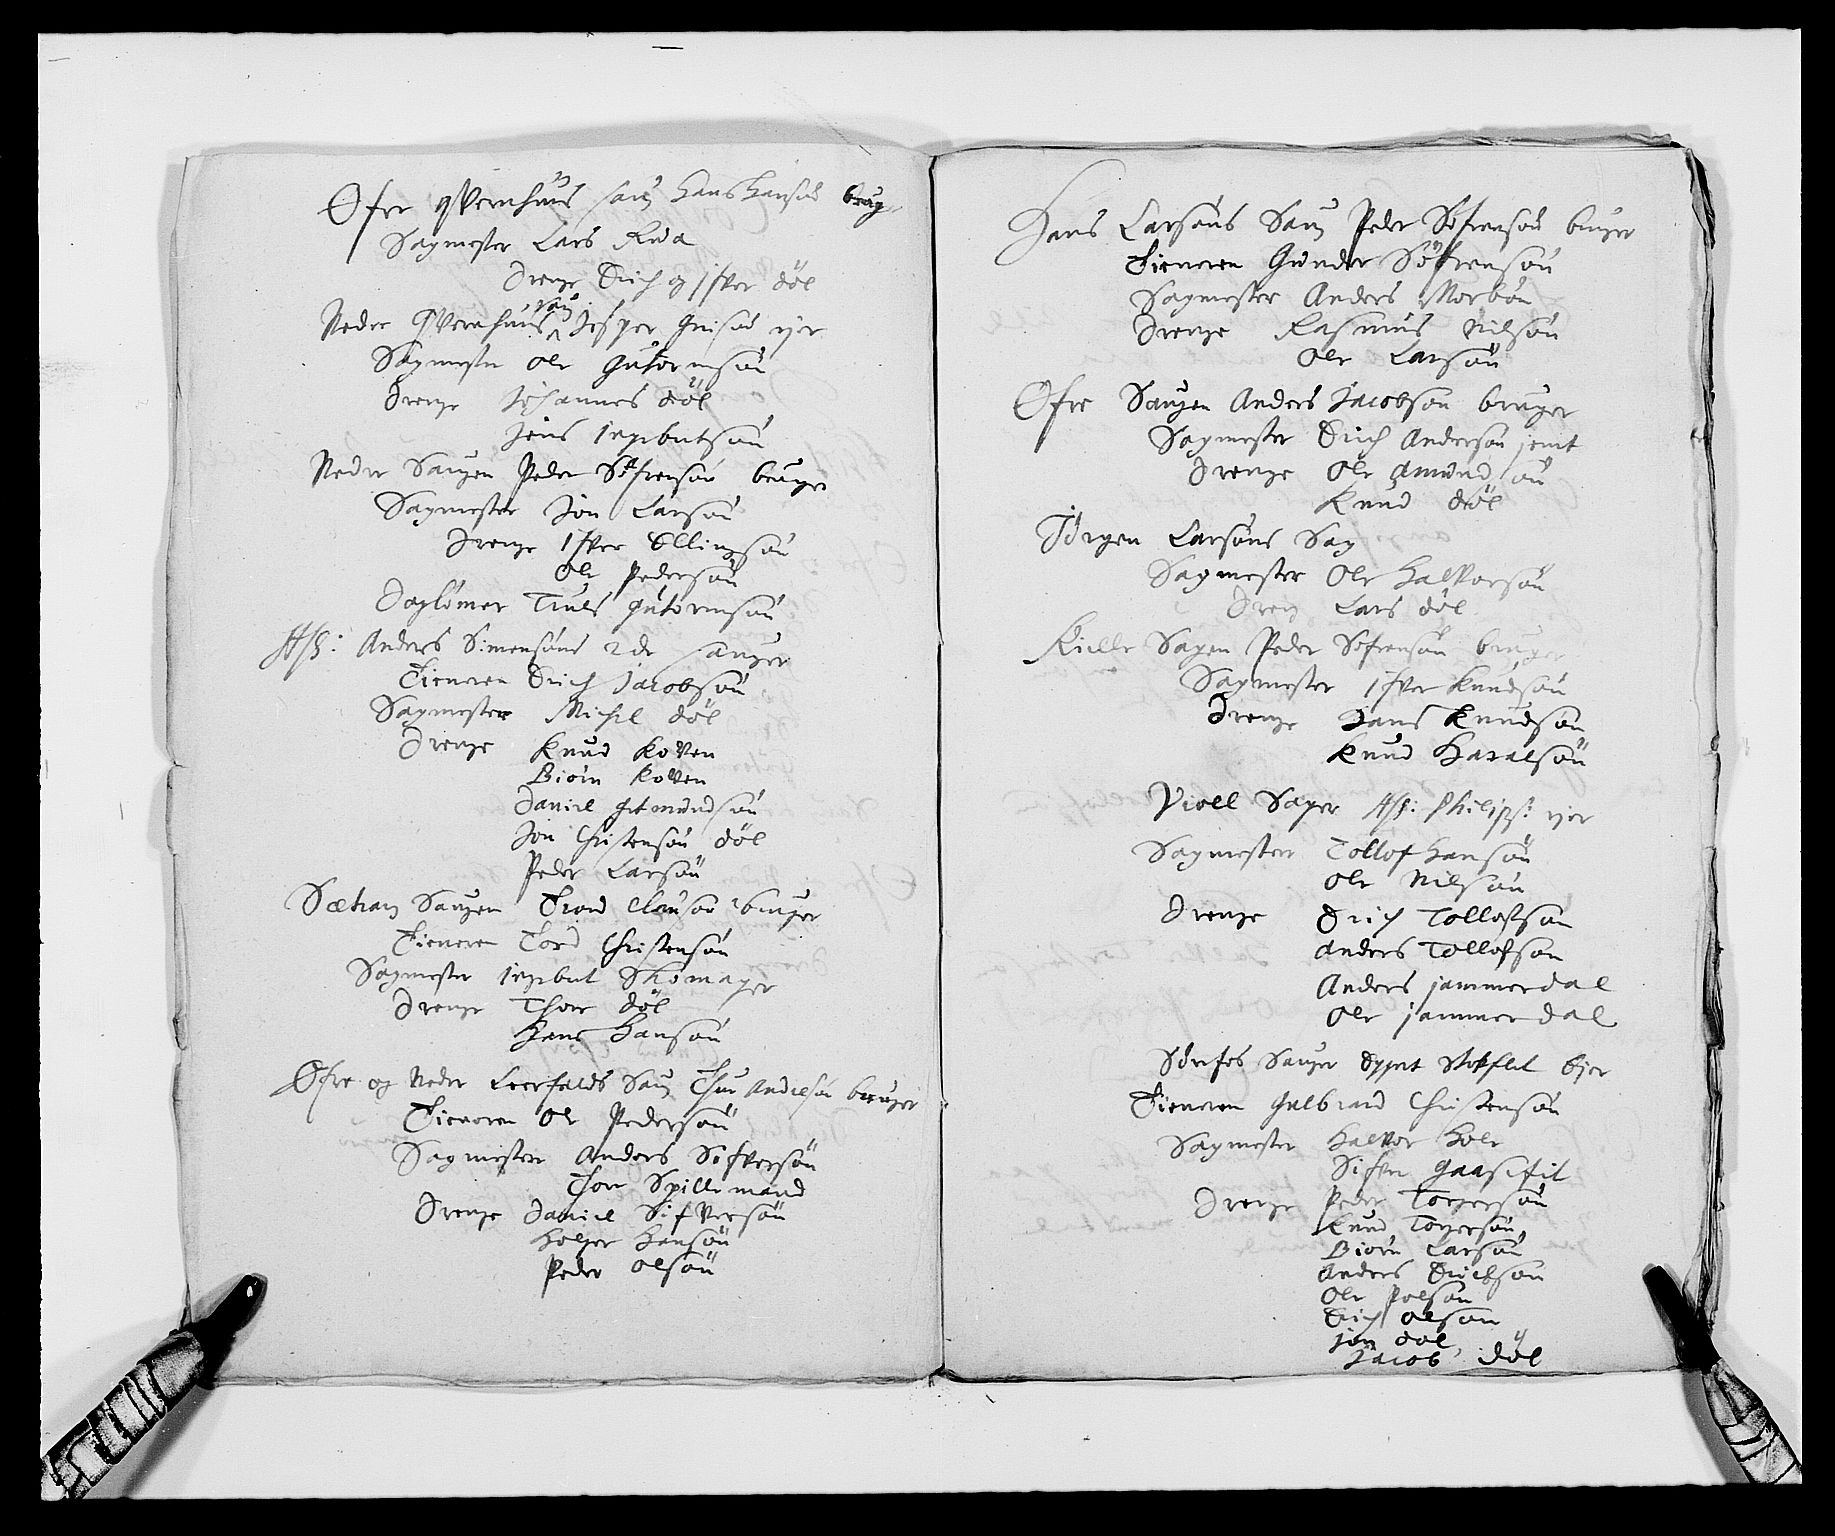 Øfre qVernhuus Saug Hans Hansøn brug.
Sagmester Lars Rua
Drenge Erich og Ifver døl
Neder qVernhuus saug Jesper ejer
Sagmester Ole Gutormsøn
Drenge Johannes døl
Jens Ingebretsøn
Nedre Saugen Peder Søfrensøn bruger
Sagmester Jon Larsøn
Drenge Ifver Ellingsøn
Ole Pedersøn
Daglømer Truls Gutormsøn
Ass: Anders Simensøns 2de Sauger
Tieneren Erich Jacobsøn
Sagmester Michel døl
Drenge Knud KoVen
Biørn KoVen
Daniel Gutmundsøn
Jon Christensøn døl
Peder Larsøn
Sætrang Saugen Trond Clausøn bruger
Tieneren Tord Christensøn
Sagmester Ingebret Skomager
Drenge Thore døl
Hans Hansøn
Øfre og Neder Leerfalds Saug Thue Andersøn bruger
Tieneren Ole Pedersøn
Sagmester Anders Sifversøn
Thore Spillemand
Drenge Daniel SifVersøn
Holger Hansøn
Peder Olsøn
Hans Larsøns Saug Peder Søfrensøn bruger
Tieneren Gunder Søfrensøn
Sagmester Anders Morbøn
Drenge Rasmus Nilsøn
Ole Larsøn
Øfre Saugen Anders Jacobsøn bruger
Sagmester Erich Andersøn jemt
Drenge Ole Amundsøn
Knud døl
Jørgen Larsøns Sag
Sagmester Ole HalVorsøn
Dreng Lars døl
Kielle Sagen Peder Søfrensøn bruger
Sagmester Ifver Knudsøn
Drenge Hans Knudsøn
Knud Haralsøn
Viell Sager Ass: Philips: ejer
Sagmester Tollof Hansøn
Ole Nilsøn
Drenge Erich Tollofsøn
Anders Tollofsøn
Anders jammerdal
Ole jammerdal
Sørfos Sauger Eggert Stokflet Ejer
Tieneren Gulbrand Christensøn
Sagmester HalVor Hole
Sifver
Drenge Peder Torgersøn
Knud Torgersøn
Biørn Larsøn
Anders Erichsøn
Ole Polsøn
Erich Olsøn
Jon døl
Jacob døl